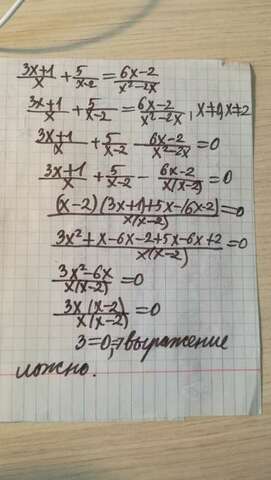 (3x+1)/x + 5/(x-2) = (6x-2)/(x²-2x)
(3x+1)/x + 5/(x-2) = (6x-2)/(x²-2x), x≠0, x≠2
(3x+1)/x + 5/(x-2) - (6x-2)/(x²-2x) = 0
(3x+1)/x + 5/(x-2) - (6x-2)/(x(x-2)) = 0
((x-2)(3x+1)+5x-(6x-2))/(x(x-2)) = 0
(3x²+x-6x-2+5x-6x+2)/(x(x-2)) = 0
(3x²-6x)/(x(x-2)) = 0
(3x(x-2))/(x(x-2)) = 0
3=0,⇒выражение
ложно.